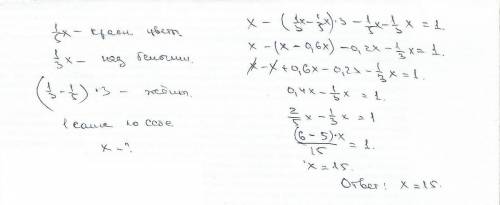 1/5 x – красн. цветы
1/3 x – над белыми.
(1/3 – 1/5) · 3 – жёлты.
x – ?
x – (1/3 x – 1/5 x) · 3 – 1/5 x – 1/3 x = 1.
x – (x – 0,6x) – 0,2x – 1/3 x = 1.
x – x + 0,6x – 0,2x – 1/3 x = 1.
0,4x – 1/3 x = 1.
2/5 x – 1/3 x = 1
(6 – 5) · x / 15 = 1.
x = 15.
Ответ: x = 15.